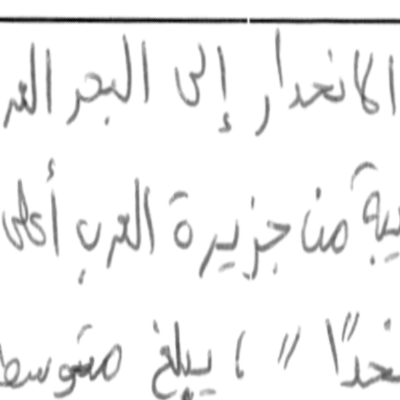 الانحدار إلى البحر العر
بية من جزيرة العرب أعلى
نخدًا " ، يبلغ متوسط